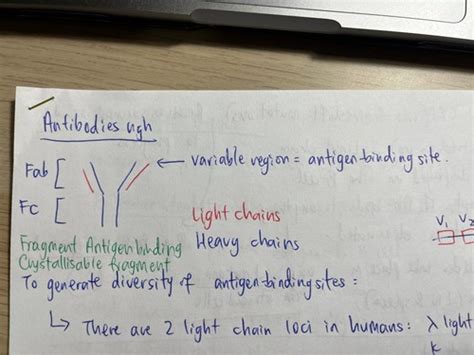 Antibodies ugh
Fab [
← variable region = antigen-binding site.
FC [
Light chains
Heavy chains
V1 V2
Fragment Antigen binding
Crystallisable fragment
To generate diversity of antigen-binding sites:
↳ There are 2 light chain loci in humans: λ light
K